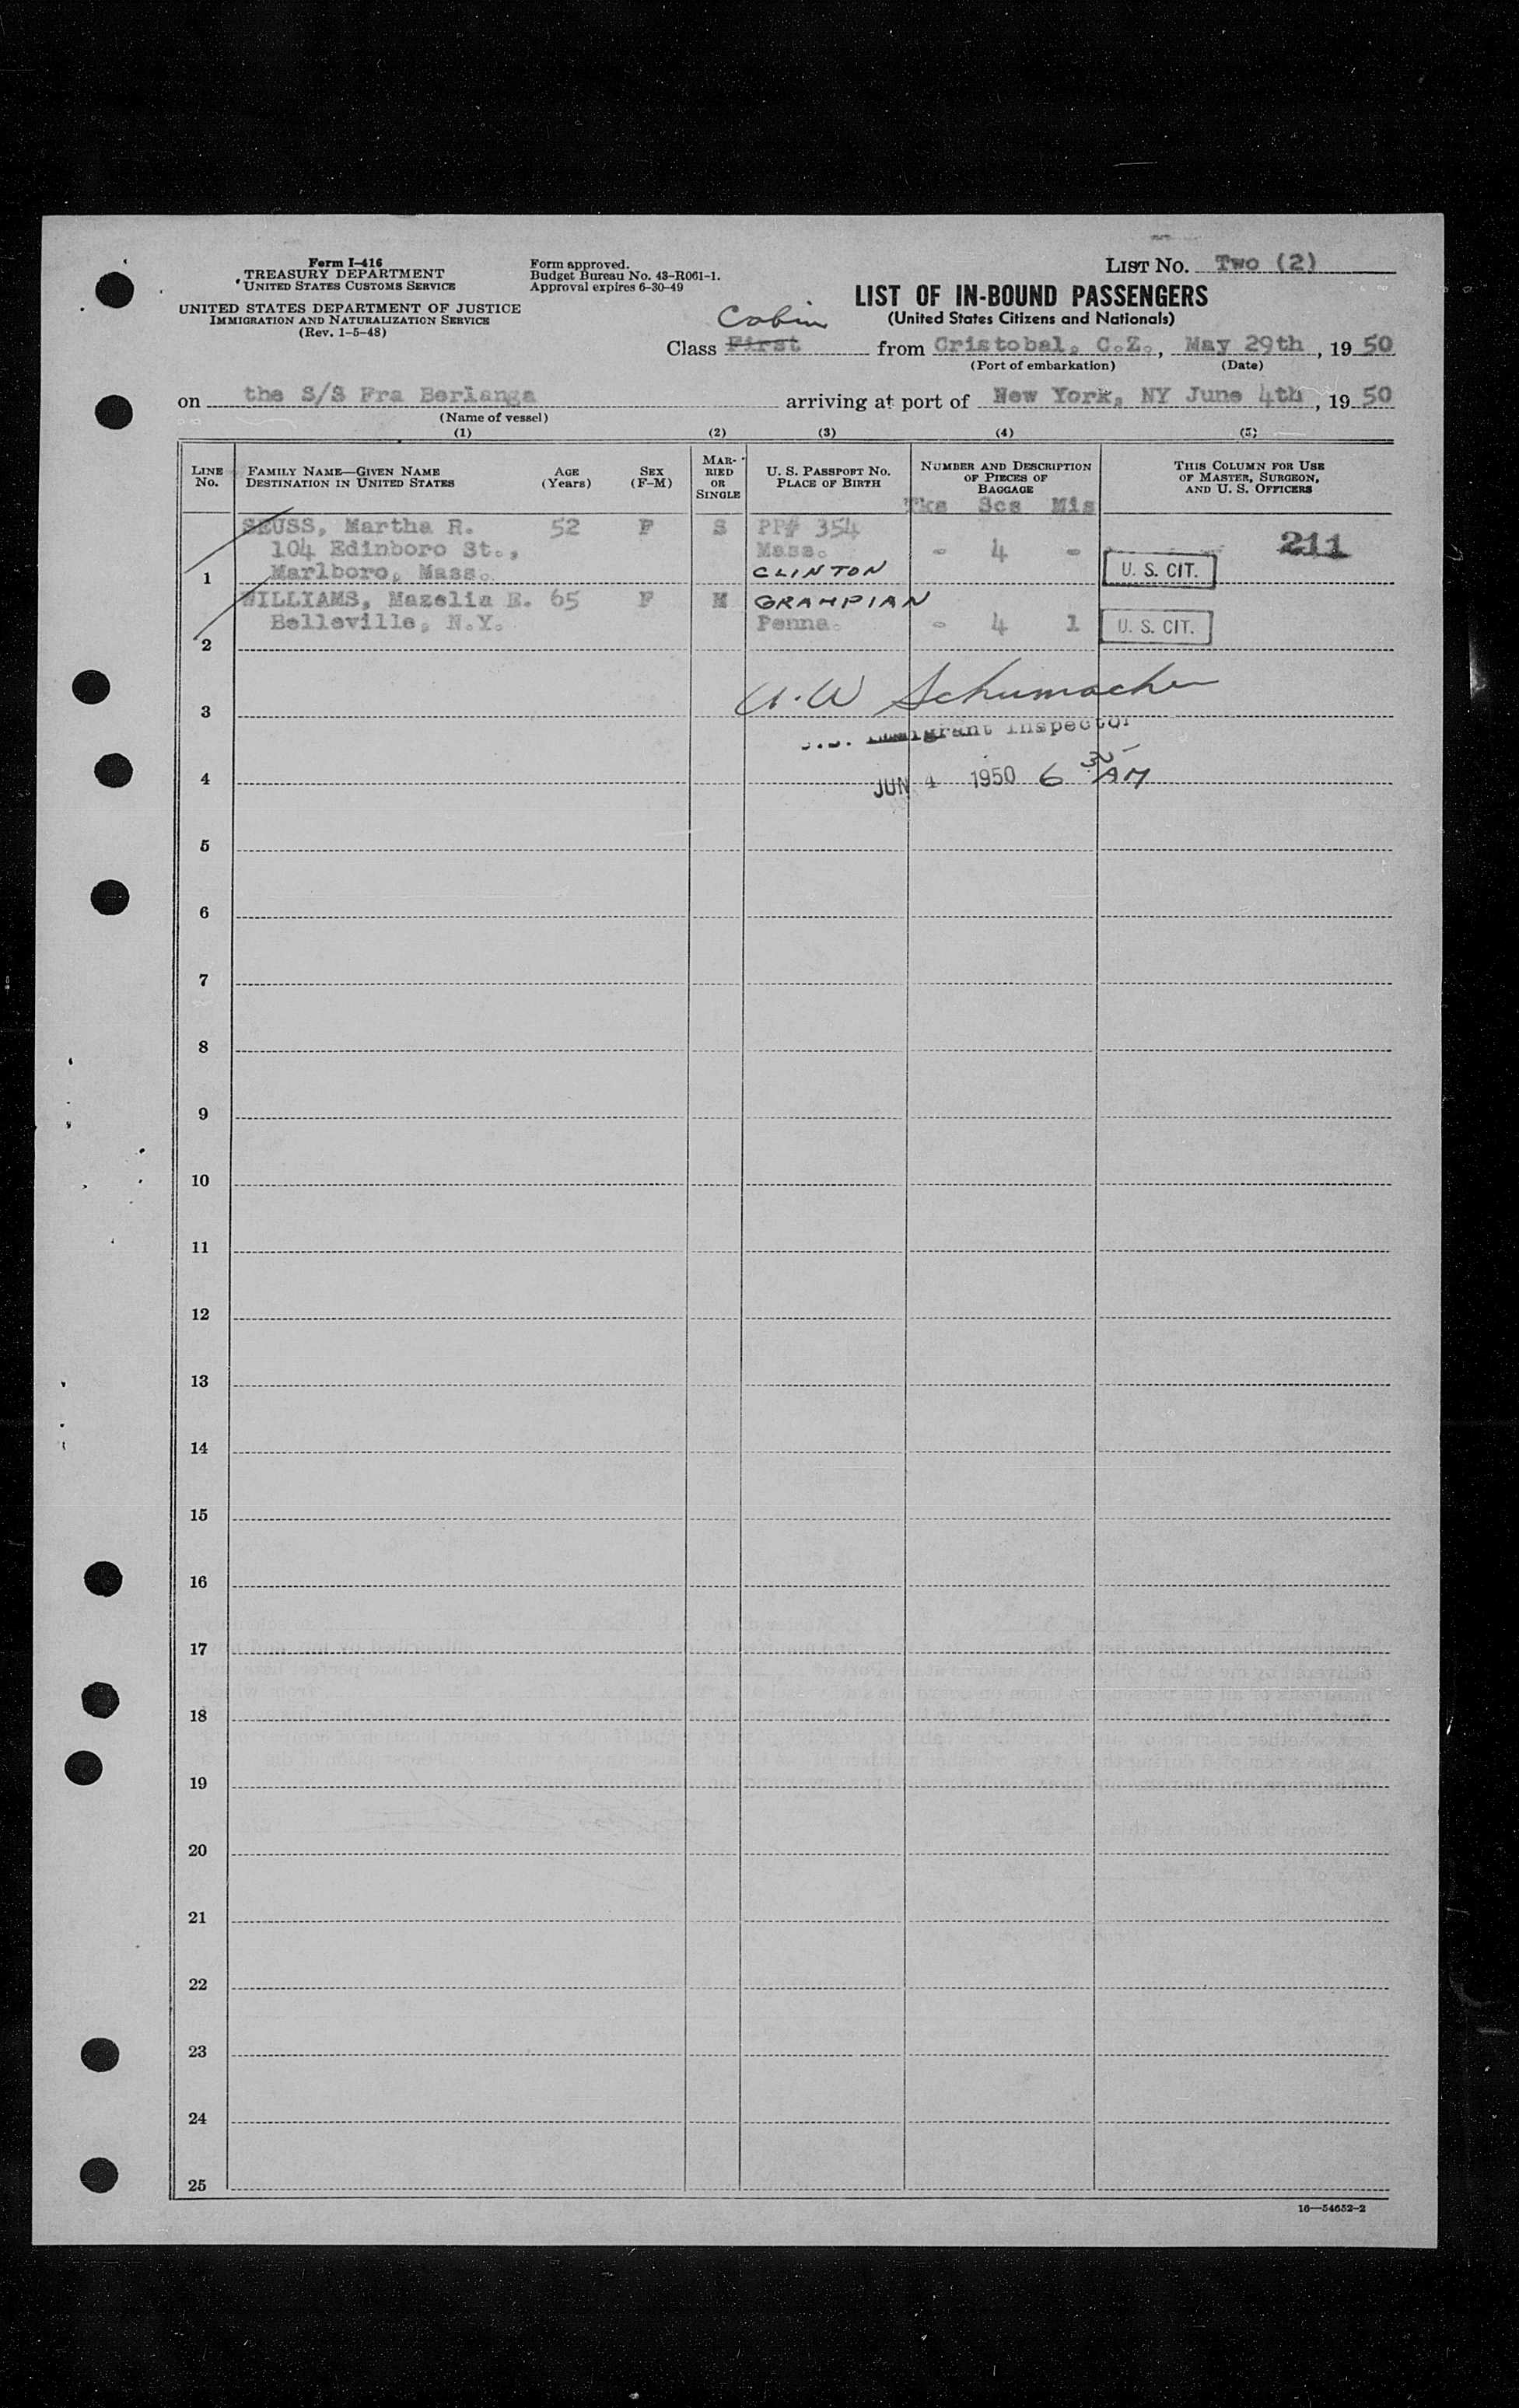 Form I-416
TREASURY DEPARTMENT
UNITED STATES CUSTOMS SERVICE
UNITED STATES DEPARTMENT OF JUSTICE
IMMIGRATION AND NATURALIZATION SERVICE
(Rev. 1-5-48)
Form approved.
Budget Bureau No. 43-R061-1.
Approval expires 6-30-49
LIST NO. Two (2)
LIST OF IN-BOUND PASSENGERS
(United States Citizens and Nationals)
Cabin
Class First from Cristobal, C.Z., May 29th, 1950
(Port of embarkation) (Date)
on the S/S Fra Berlanga arriving at port of New York, NY June 4th, 1950
(Name of vessel)
(1) (2) (3) (4) (5)
LINE NO.
FAMILY NAME—GIVEN NAME
DESTINATION IN UNITED STATES
AGE (Years)
SEX (F-M)
MARRIED OR SINGLE
U. S. PASSPORT NO.
PLACE OF BIRTH
NUMBER AND DESCRIPTION
OF PIECES OF
BAGGAGE
Tks Scs Mis
THIS COLUMN FOR USE
OF MASTER, SURGEON,
AND U. S. OFFICERS
SEUSS, Martha R. 52 F S PP# 354
104 Edinboro St., Mass. - 4 - 211
1 Marlboro, Mass. CLINTON U. S. CIT.
WILLIAMS, Mazelia E. 65 F M GRAMPIAN
Belleville, N.Y. Penna. - 4 1 U. S. CIT.
2
Schumacher
3
Immigrant Inspector
4 JUN 4 1950 6 AM
5
6
7
8
9
10
11
12
13
14
15
16
17
18
19
20
21
22
23
24
25
16—54652-2